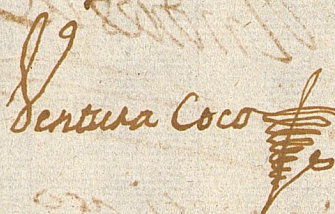 Ventura Coco